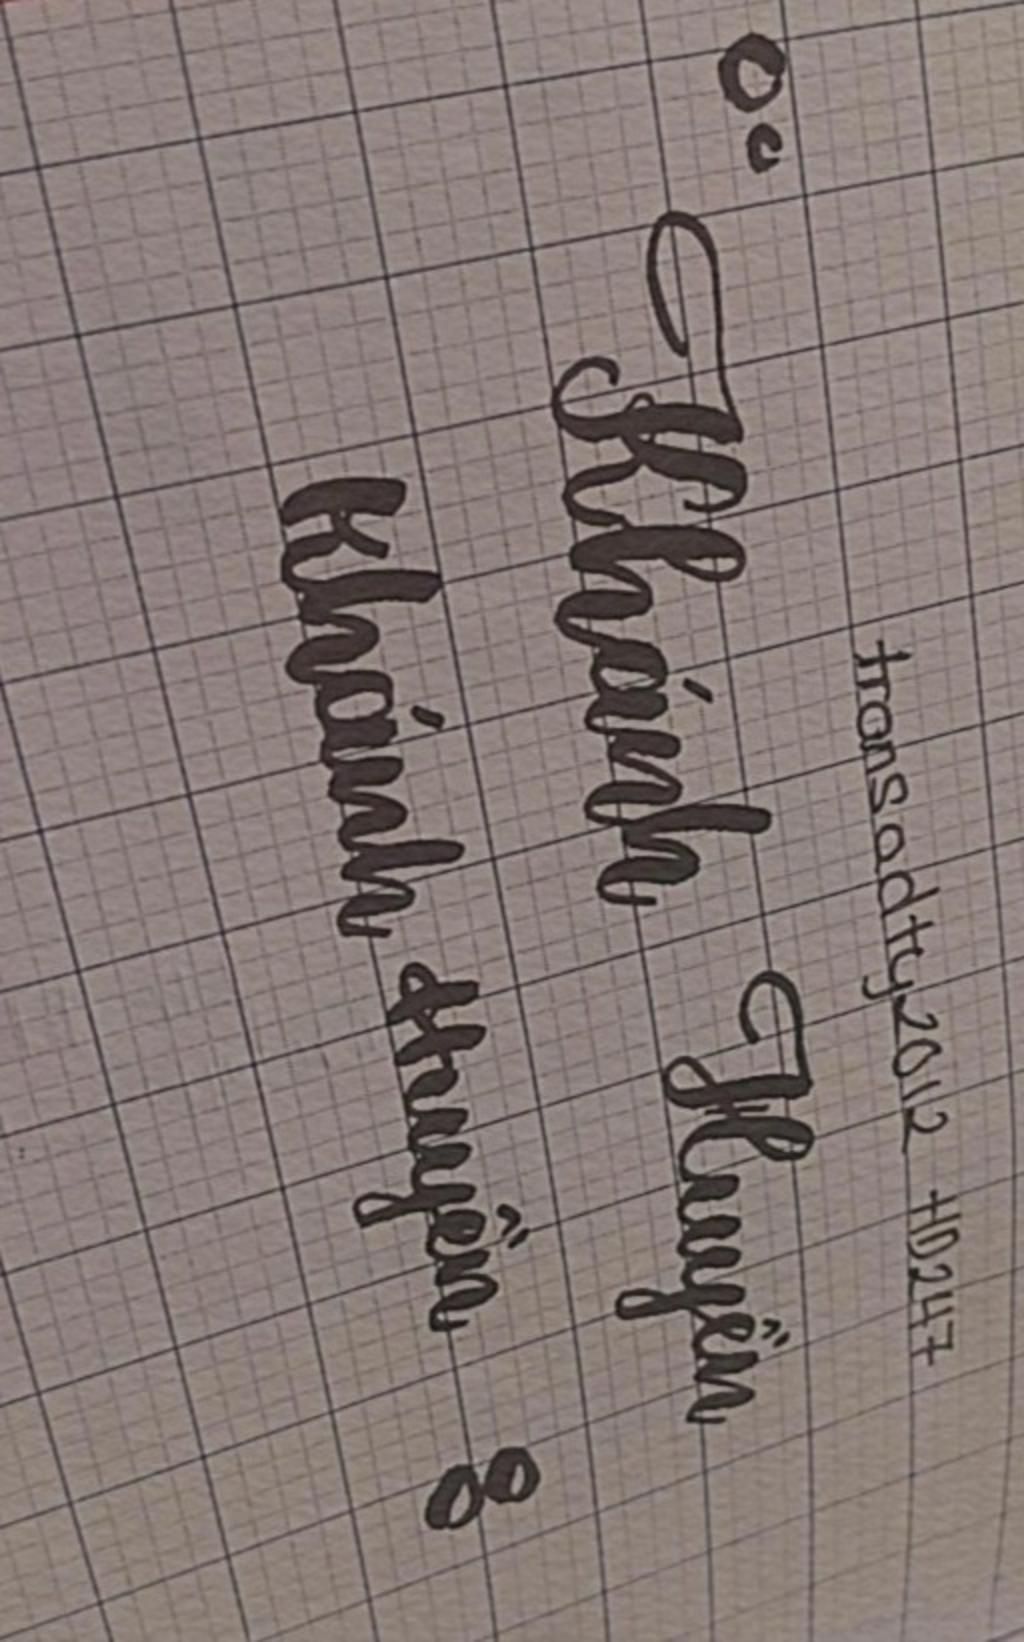 transadtty2012 HD247
Khánh Huyền
Khánh Huyền